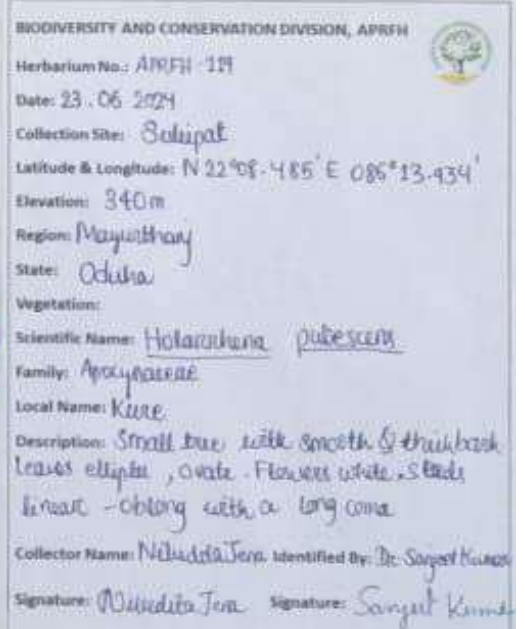 BIODIVERSITY AND CONSERVATION DIVISION, APRFH
Herbarium No.: APRFH-119
Date: 23.06 2024
Collection Site: Suleipat
Latitude & Longitude: N 22°08.485' E 086°13.434'
Elevation: 340m
Region: Mayurbhanj
State: Odisha
Vegetation:
Scientific Name: Holarrhena pubescens
Family: Apocynaceae
Local Name: Kure
Description: Small tree with smooth & thick bark
leaves elliptic, ovate. Flowers white. Seeds
linear-oblong with a long coma
Collector Name: Nibedita Jena Identified By: Dr Sanjeet Kumar
Signature: Nibedita Jena Signature: Sanjeet Kumar